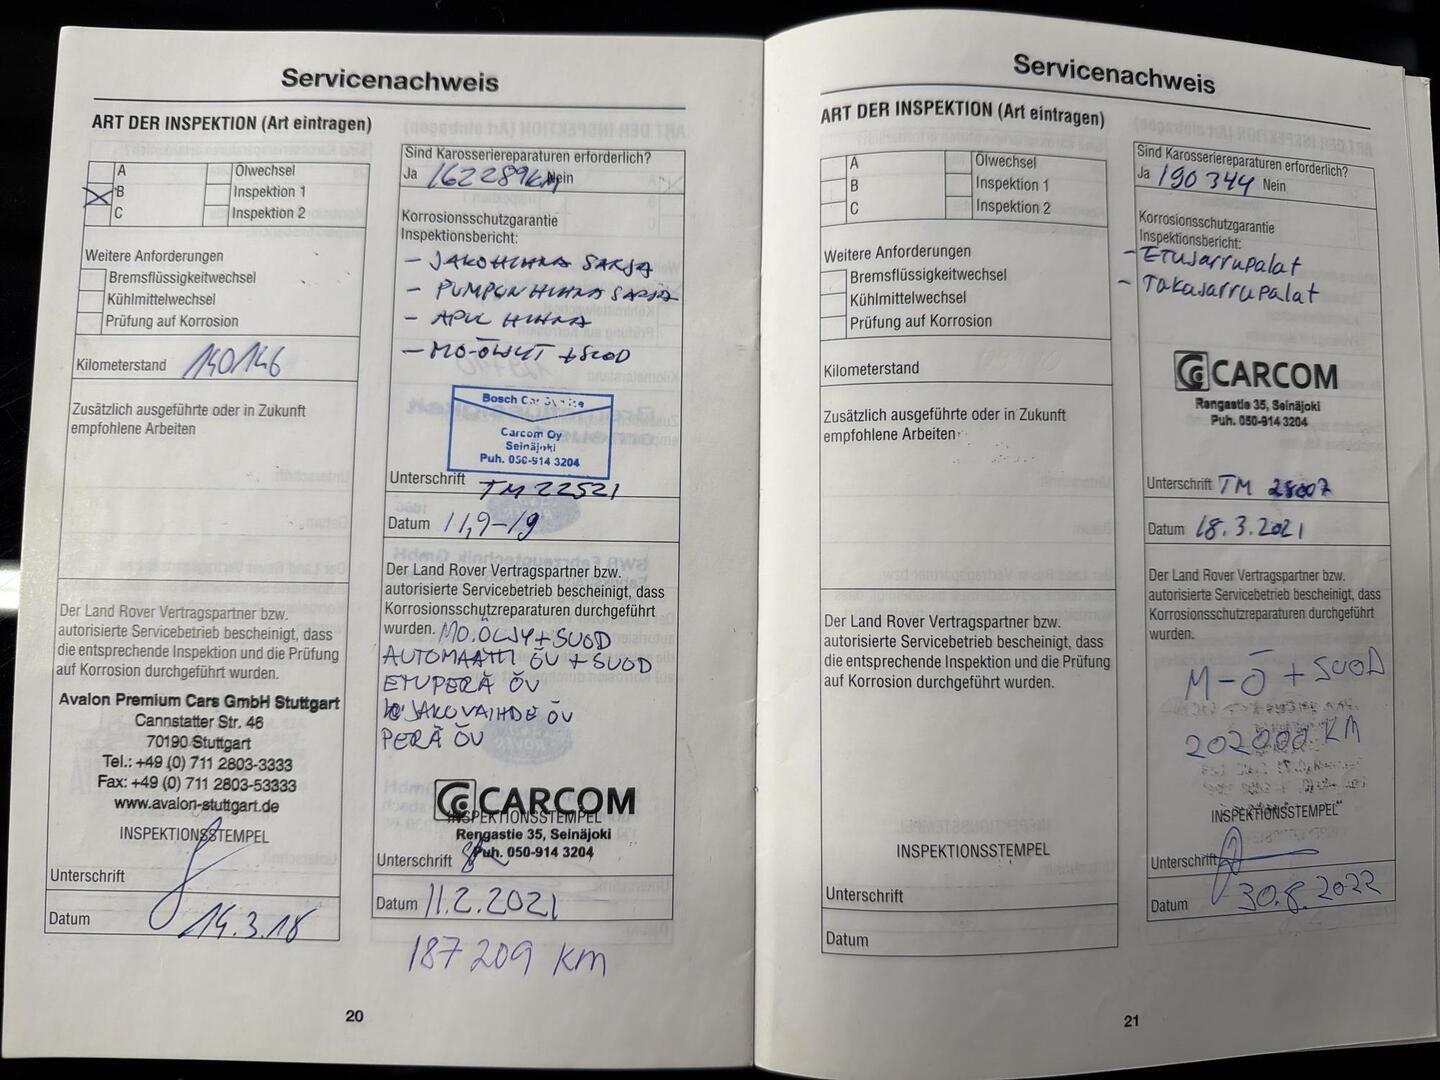 Servicenachweis
ART DER INSPEKTION (Art eintragen)
A
B
C
Ölwechsel
Inspektion 1
Inspektion 2
Weitere Anforderungen
Bremsflüssigkeitwechsel
Kühlmittelwechsel
Prüfung auf Korrosion
Kilometerstand 140146
Zusätzlich ausgeführte oder in Zukunft
empfohlene Arbeiten
Der Land Rover Vertragspartner bzw.
autorisierte Servicebetrieb bescheinigt, dass
die entsprechende Inspektion und die Prüfung
auf Korrosion durchgeführt wurden.
Avalon Premium Cars GmbH Stuttgart
Cannstatter Str. 46
70190 Stuttgart
Tel.: +49 (0) 711 2803-3333
Fax: +49 (0) 711 2803-53333
www.avalon-stuttgart.de
INSPEKTIONSSTEMPEL
Unterschrift
Datum 14.3.18
Sind Karosseriereparaturen erforderlich?
Ja 162289KM Nein
Korrosionsschutzgarantie
Inspektionsbericht:
- JAKOHIHNA SARJA
- PUMPUN HIHNA SARJA
- APU HIHNA
- MO-ÖLJYT + SUOD
Bosch Car Service
Carcom Oy
Seinäjoki
Puh. 050-914 3204
Unterschrift TM 22521
Datum 11,9-19
Der Land Rover Vertragspartner bzw.
autorisierte Servicebetrieb bescheinigt, dass
Korrosionsschutzreparaturen durchgeführt
wurden. MO.ÖLJY + SUOD
AUTOMAATTI ÖV + SUOD
ETUPERÄ ÖV
JAKOVAIHDE ÖV
PERÄ ÖV
CARCOM
INSPEKTIONSSTEMPEL
Rengastie 35, Seinäjoki
Puh. 050-914 3204
Unterschrift
Datum 11.2.2021
187 209 KM
20
Servicenachweis
ART DER INSPEKTION (Art eintragen)
A
B
C
Ölwechsel
Inspektion 1
Inspektion 2
Weitere Anforderungen
Bremsflüssigkeitwechsel
Kühlmittelwechsel
Prüfung auf Korrosion
Kilometerstand
Zusätzlich ausgeführte oder in Zukunft
empfohlene Arbeiten
Der Land Rover Vertragspartner bzw.
autorisierte Servicebetrieb bescheinigt, dass
die entsprechende Inspektion und die Prüfung
auf Korrosion durchgeführt wurden.
INSPEKTIONSSTEMPEL
Unterschrift
Datum
Sind Karosseriereparaturen erforderlich?
Ja 190 344 Nein
Korrosionsschutzgarantie
Inspektionsbericht:
- Etusarrupalat
- Takasarrupalat
CARCOM
Rengastie 35, Seinäjoki
Puh. 050-914 3204
Unterschrift TM 28007
Datum 18.3.2021
Der Land Rover Vertragspartner bzw.
autorisierte Servicebetrieb bescheinigt, dass
Korrosionsschutzreparaturen durchgeführt
wurden.
M-Ö + SUOD
202000 KM
INSPEKTIONSSTEMPEL
Unterschrift
Datum 30.8.2022
21